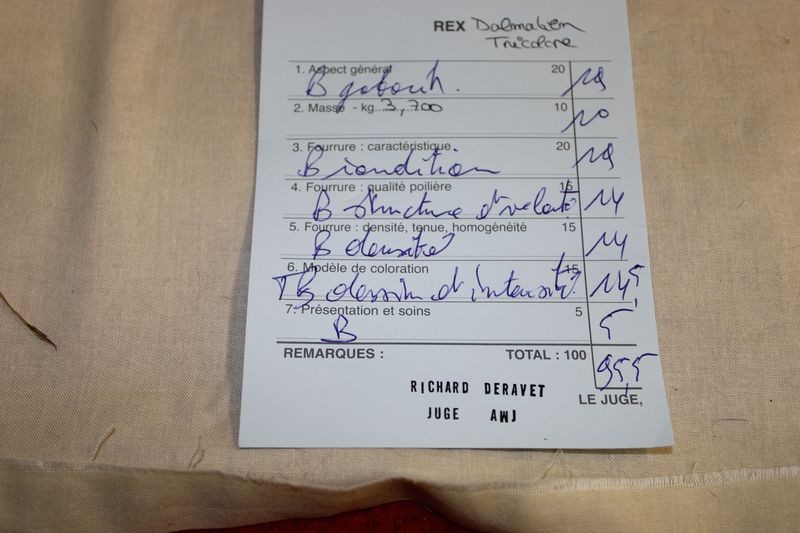 REX Dalmatien
Tricolore
1. Aspect général 20 19
B gabarit.
2. Masse - kg. 3,700 10 10
3. Fourrure : caractéristique 20 19
B condition
4. Fourrure : qualité poilière 15 14
B structure et velouté
5. Fourrure : densité, tenue, homogénéité 15 14
B densité
6. Modèle de coloration 15 14,5
TB dessin et intensité
7. Présentation et soins 5 5
B
REMARQUES : TOTAL : 100 95,5
RICHARD DERAVET
JUGE AWJ
LE JUGE,